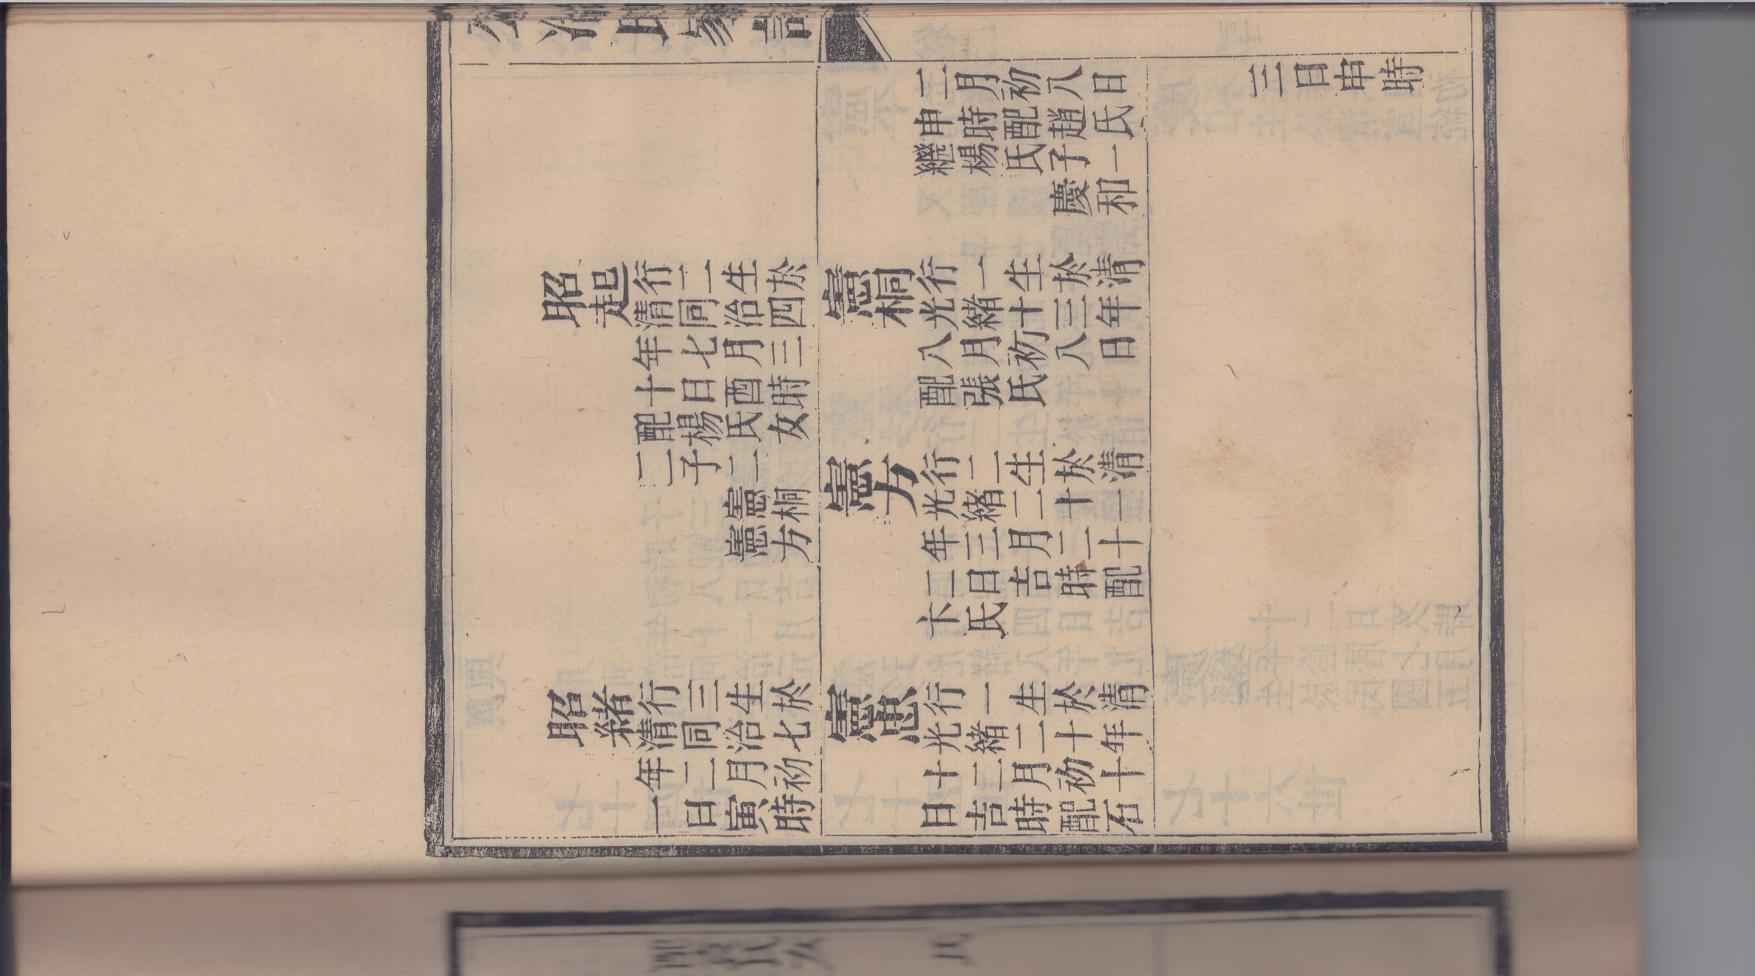 公冶氏家譜
昭起行二生於
清同治四
年七月三
十日酉時
配楊氏女
二子二
憲桐
憲方
昭緒行三生於
清同治七
年二月初
一日寅時
二月初八日
申時配趙氏
繼楊氏子一
慶和
憲桐行一生於清
光緒十三年
八月初八日
配張氏
憲方行二生於清
光緒二十一
年三月二十
二日吉時配
卞氏
憲忠行一生於清
光緒二十年
十二月初十
日吉時配石
三日申時